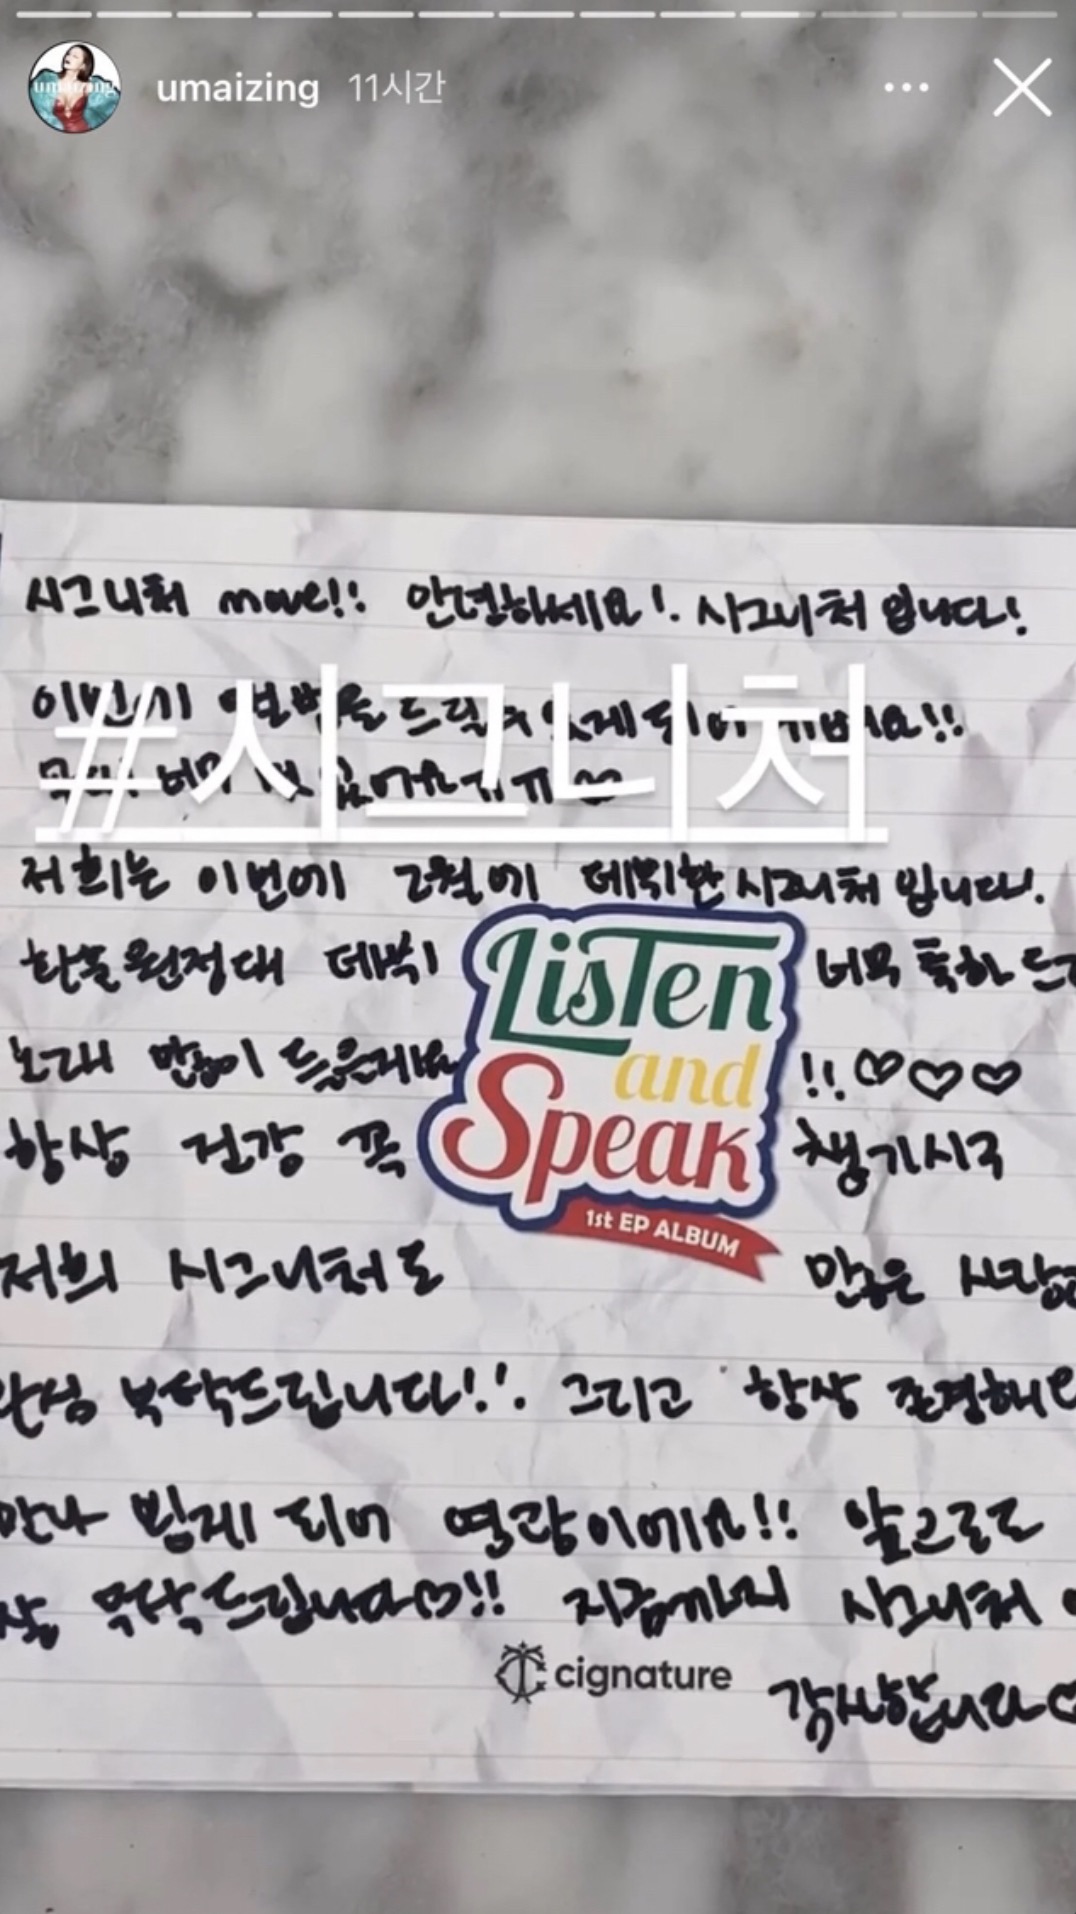 umaizing 11시간
시그니처 move!! 안녕하세요!. 시그니처 입니다!
이번에 드릴 수 있게 되어
#시그니처
저희는 이번에 2월에 데뷔한 시그니처 입니다.
한솔원정대 데뷔 너무 축하
노래 많이 들을게요 !! ♡♡♡
항상 건강 꼭 챙기시구
Listen
and
Speak
1st EP ALBUM
저희 시그니처도 많은
부탁드립니다!!. 그리고 항상 존경해
만나 뵙게 되어 영광이에요!! 앞으로도
부탁드립니다♡!! 지금까지 시그니처
cignature
감사합니다♡